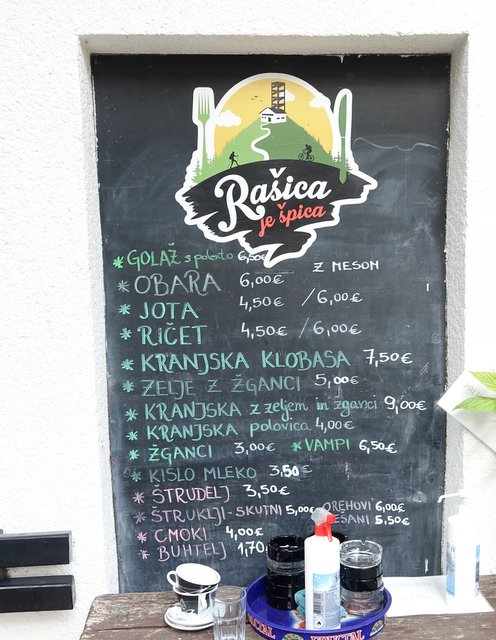 Rašica
je špica
* GOLAŽ s polento 6,50€
Z MESOM
* OBARA 6,00€
* JOTA 4,50€ / 6,00€
* RIČET 4,50€ / 6,00€
* KRANJSKA KLOBASA 7,50€
* ZELJE Z ŽGANCI 5,00€
* KRANJSKA z zeljem in žganci 9,00€
* KRANJSKA polovica 4,00€
* ŽGANCI 3,00€ * VAMPI 6,50€
* KISLO MLEKO 3,50€
* ŠTRUDELJ 3,50€
* ŠTRUKLJI - SKUTNI 5,00€ OREHOVI 6,00€
EŠANI 5,50€
* CMOKI 4,00€
* BUHTELJ 1,70